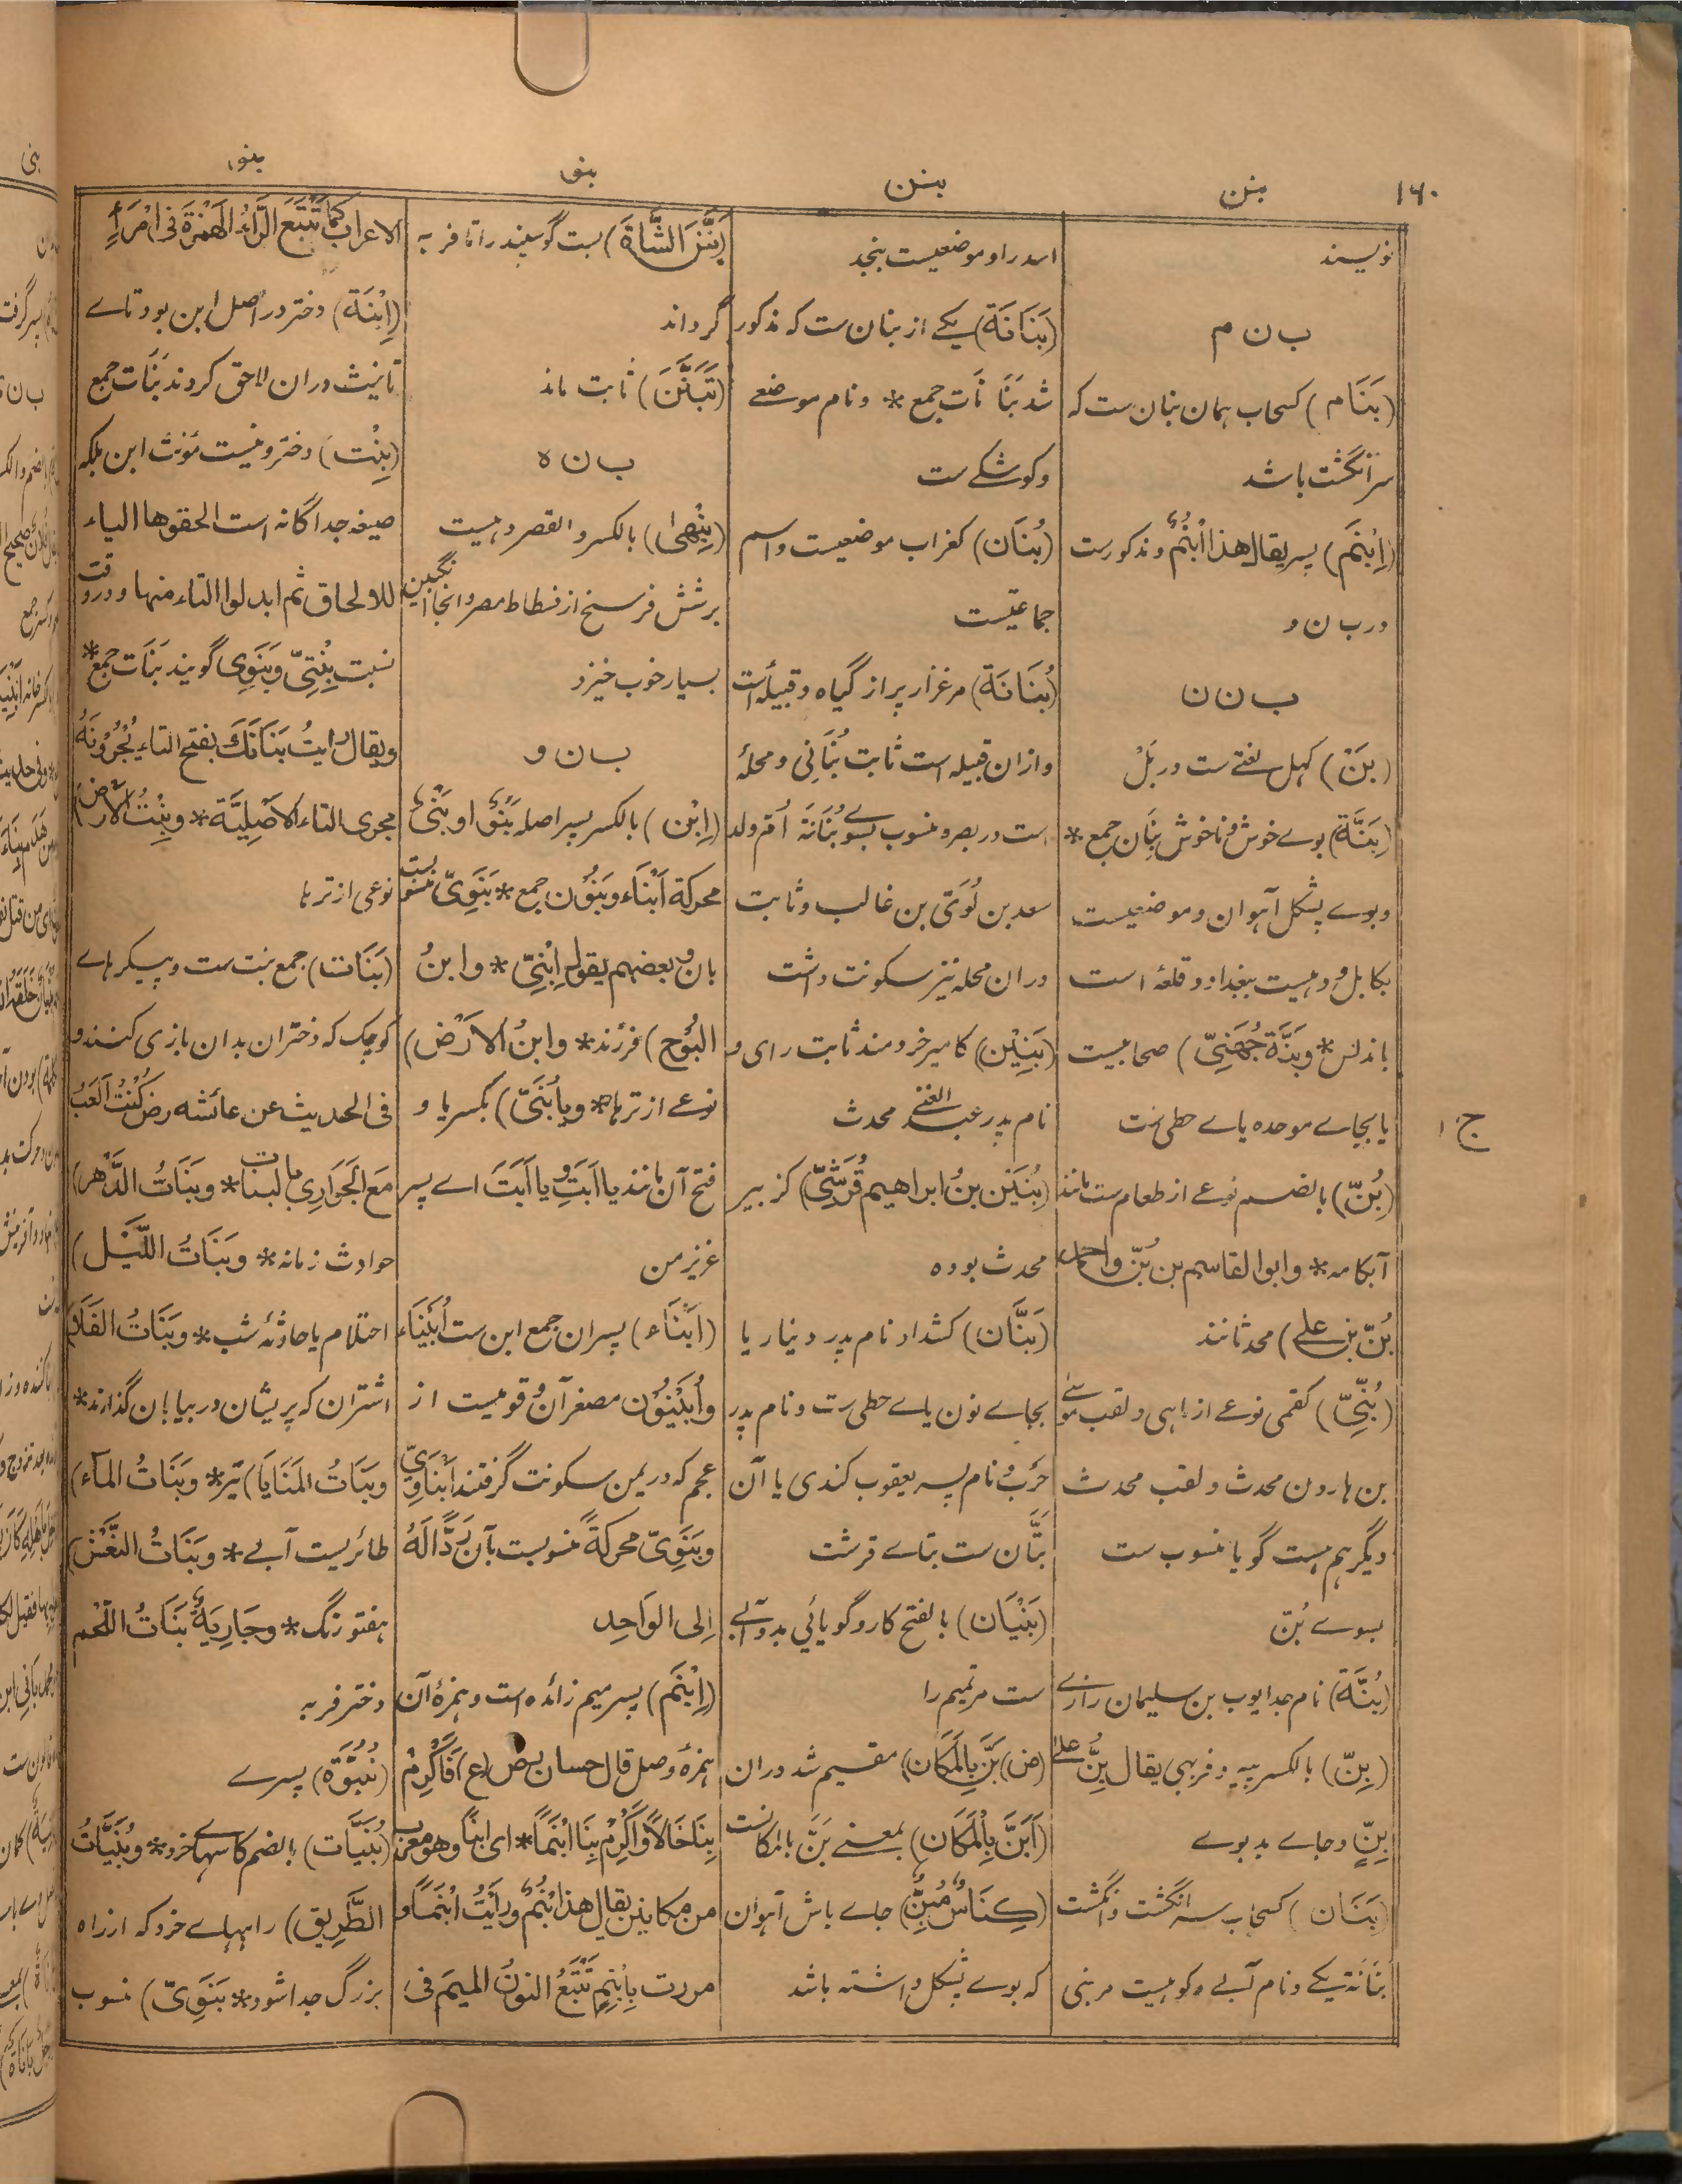 ۱۶۰
بنن
بنن
بنو
بنو
نویسند
ب ن م
(بَنَام) کسحاب همان بنان ست که
سر انگشت باشد
(اِبْنَم) پسر یقال هذا ابْنُمٌ و مذکورست
در ب ن و
ب ن ن
(بَنْ) کهل لغتے ست در بَلْ
(بَنَّة) بوے خوش و ناخوش بِنَان جمع *
و بوے پشکل آهوان و موضعیست
بکابل و دهیست ببغداد و قلعهٔ است
باندلس * و بَنَّة جُهَنِیّ) صحابیست
یا بجاے موحده یاے حطی ست
(بُنّ) بالضم نوعے از طعام ست مانند
آبکامه * و ابوالقاسم بن بُنّ و احمد
بُنّ بن علے) محدثانند
(بُنِّیّ) کقمی نوعے از ماهی و لقب موسٰے
بن هارون محدث و لقب محدث
دیگر هم هست گویا منسوب ست
بسوے بُنّ
(بُنَّة) نام جد ایوب بن سلیمان رازے
(بِنّ) بالکسر پیه و فربهی یقال بِنٌّ علیٰ
بِنٍّ و جاے بدبوے
(بَنَان) کسحاب سر انگشت و انگشت
بَنَانَة یکے و نام آبے و کوهیست مر بنی
اسد را و موضعیست بنجد
(بَنَانَة) یکے از بنان ست که مذکور
شد بَنَانَات جمع * و نام موضعے
و کوشکے ست
(بُنَان) کغراب موضعیست و اسم
جماعتیست
(بُنَانَة) مرغزار پر از گیاه و قبیله است
و ازان قبیله است ثابت بُنَانِی و محلهٔ
است در بصره منسوب بسوے بُنَانَة اُمّ ولد
سعد بن لُوَیّ بن غالب و ثابت
دران محله نیز سکونت داشت
(بَنِیْن) کامیر خردمند ثابت رای و
نام پدر عبد الغنے محدث
(بُنَیْن بنُ ابراهیم قُرَشِیّ) کزبیر
محدث بوده
(بَنَّان) کشداد نام پدر دینار یا
بجاے نون یاے حطی ست و نام پدر
حَرْب و نام پسر یعقوب کندی یا آن
بَتَّان ست بتاے قرشت
(بَنْیَان) بالفتح کار و گویائی بد و آبے
ست مر تمیم را
(ض) بَنَّ بِالْمَکَان) مقیم شد دران
(اَبَنَّ بِالْمَکَان) بمعنے بَنَّ بالمکانست
(کِنَاسٌ مُبِنٌّ) جاے باش آهوان
که بوے پشکل داشته باشد
(بَنَّنَ الشَّاةَ) بست گوسپند را تا فربه
گرداند
(تَبَنَّنَ) ثابت ماند
ب ن ه
(بِنْهٰی) بالکسر و القصر دهیست
برشش فرسخ از فسطاط مصر و انجا انگبین
بسیار خوب خیزد
ب ن و
(اِبْن) بالکسر پسر اصله بَنَوٌ او بَنَیٌ
محرکة اَبْنَاء و بَنُوْن جمع * بَنَوِیّ منسوبست
بان و بعضهم یقول اِبْنِیّ * و ابنُ
البُوْح) فرزند * و ابنُ الارْض)
نوعے از ترها * و یا بُنَیّ) بکسر یا و
فتح آن مانند یا اَبَتِ و یا اَبَتَ اے پسر
عزیز من
(اَبْنَاء) پسران جمع ابن ست اُبَیْنَاء
و اُبَیْنُوْن مصغر آن و قومیست از
عجم که در یمن سکونت گرفتند اَبْنَاوِیّ
و بَنَوِیّ محرکةً منسوبست بآن رَدًّا لَهُ
اِلی الواحِد
(اِبْنَم) پسر میم زائده است و همزهٔ آن
همزهٔ وصل قال حسان رض (ع) فَاَکْرِمْ
بِنَا خَالًا وَ اَکْرِمْ بِنَا ابْنَمًا * ای ابنًا و هو معرب
من مکانین یقال هذا ابْنُمٌ و رأیتُ ابْنَمًا و
مررت بِابْنِمٍ تَتْبَعُ النونُ المیمَ فی
الاعراب کما تَتْبَعَ الرَّاءُ الهَمْزَةَ فی امْرَأ
(اِبْنَة) دختر در اصل ابن بود تاے
تانیث دران لاحق کردند بَنَات جمع
(بِنْت) دختر و نیست مؤنث ابن بلکه
صیغه جداگانه است الحقوها الیاء
للالحاق ثم ابدلوا التاء منها و در وقت
نسبت بِنْتِیّ و بَنَوِی گویند بَنَات جمع *
و یقال رایتُ بَنَاتَكَ بفتح التاء یُجْرُوْنَهُ
مجری التاء الاَصْلِیَّة * و بِنْتُ الاَرْض)
نوعی از ترها
(بَنَات) جمع بنت ست و پیکرهاے
کوچک که دختران بدان بازی کنند و
فی الحدیث عن عائشه رض کُنْتُ اَلْعَبُ
مَعَ الْجَوَارِی بالبنات * و بَنَاتُ الدَّهْر)
حوادث زمانه * و بَنَاتُ اللَّیْل)
احتلام یا حادثهٔ شب * و بَنَاتُ الفَلَاة)
اشتران که پریشان در بیابان گذارند *
و بَنَاتُ المَنَایَا) تیر * و بَنَاتُ المآء)
طائریست آبے * و بَنَاتُ النَّعْش)
هفتورنگ * و جَارِیَةٌ بَنَاتُ اللَّحْم
دختر فربه
(بُنُوَّة) پسرے
(بُنَیَّات) بالضم کاسهاے خرد * و بُنَیَّاتُ
الطَّرِیق) راههاے خرد که از راه
بزرگ جدا شود * بَنَوِیّ) منسوب
ج ۱
بنی